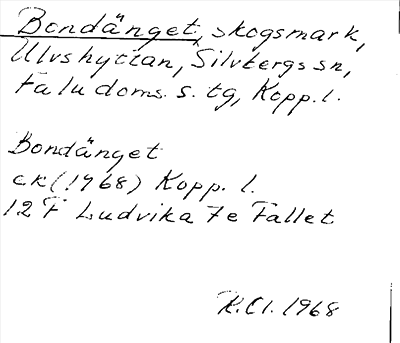 Bondänget, skogsmark,
Ulvshyttan, Silvbergs sn,
Falu doms. s. tg, Kopp. l.
Bondänget
ek (1968) Kopp. l.
12 F Ludvika 7e Fallet
R.Cl. 1968